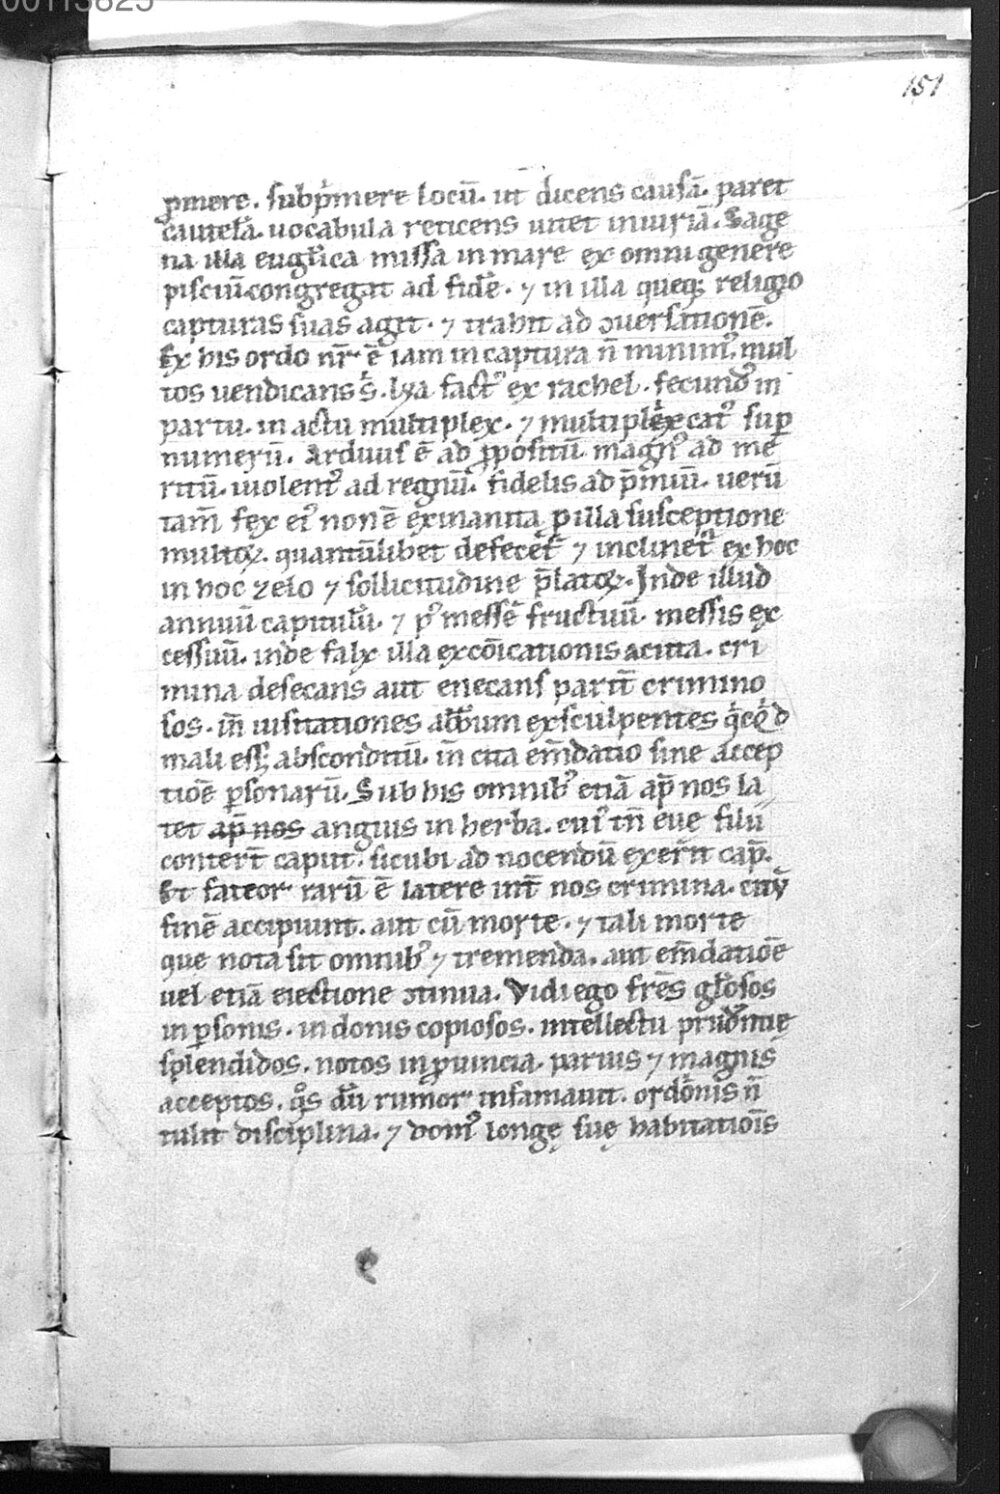 00113825
151
p̱mere. subp̓mere locū. ut dicens causā. paret
cautelā. uocabula reticens uitet iniuriā. Sage
na illa eugl̓ica missa in mare ex omni genere
pisciū congregat ad fidē. ⁊ in illa queq; religio
capturas suas agit. ⁊ trahit ad ꝯuersationē.
Ex his ordo nr̄ ē iam in captura n̄ minim᾿. mul
tos uendicans s᷒. lya fact᾿ ex rachel. fecund᾿ in
partu. in actu multiplex. ⁊ multiplex̓ cat᾿ sup̱
numerū. Arduus ē ad ꝓpositū. magn᾿ ad me
ritū. uiolent᾿ ad regnū. fidelis ad p̄miū. uerū
tam̄ fex ei᾿ non ē exinanita ꝑ illa susceptione
multoꝝ. quantūlibet defecēt ⁊ inclinet᷑ ex hoc
in hoc zelo ⁊ sollicitudine p̄latoꝝ. Inde illud
annuū capitulū. ⁊ p᾿ messē fructuū. messis ex
cessuū. inde falx illa excōicationis acuta. cri
mina desecans aut enecans parit̄ crimino
sos. in̄ uisitationes abb̄um exsculpentes qͥcqͥd
mali ess; absconditū. in̄ cita em̄datio sine accep
tiōe ꝑsonarū. Sub his omnib᾿ etiā ap̄ nos la
tet ap̄ nos anguis in herba. cui᾿ tn̄ eue filii
conterēt caput. sicubi ad nocendū exerit cap̄.
Et fateor rarū ē latere int̄ nos crimina. cuȳ
finē accipiunt. aut cū morte. ⁊ tali morte
que nota sit omnib᾿ ⁊ tremenda. aut em̄datiōe
uel etiā eiectione ꝯtinua. Vidi ego fr̄es gl̓osos
in ꝑsonis. in donis copiosos. intellectu prud̄entię
splendidos. notos in ꝓuincia. paruis ⁊ magnis
acceptos. qͦs dū rumor infamauit. ordinis n̄
tulit disciplina. ⁊ dom᾿ longę suę habitatiōis